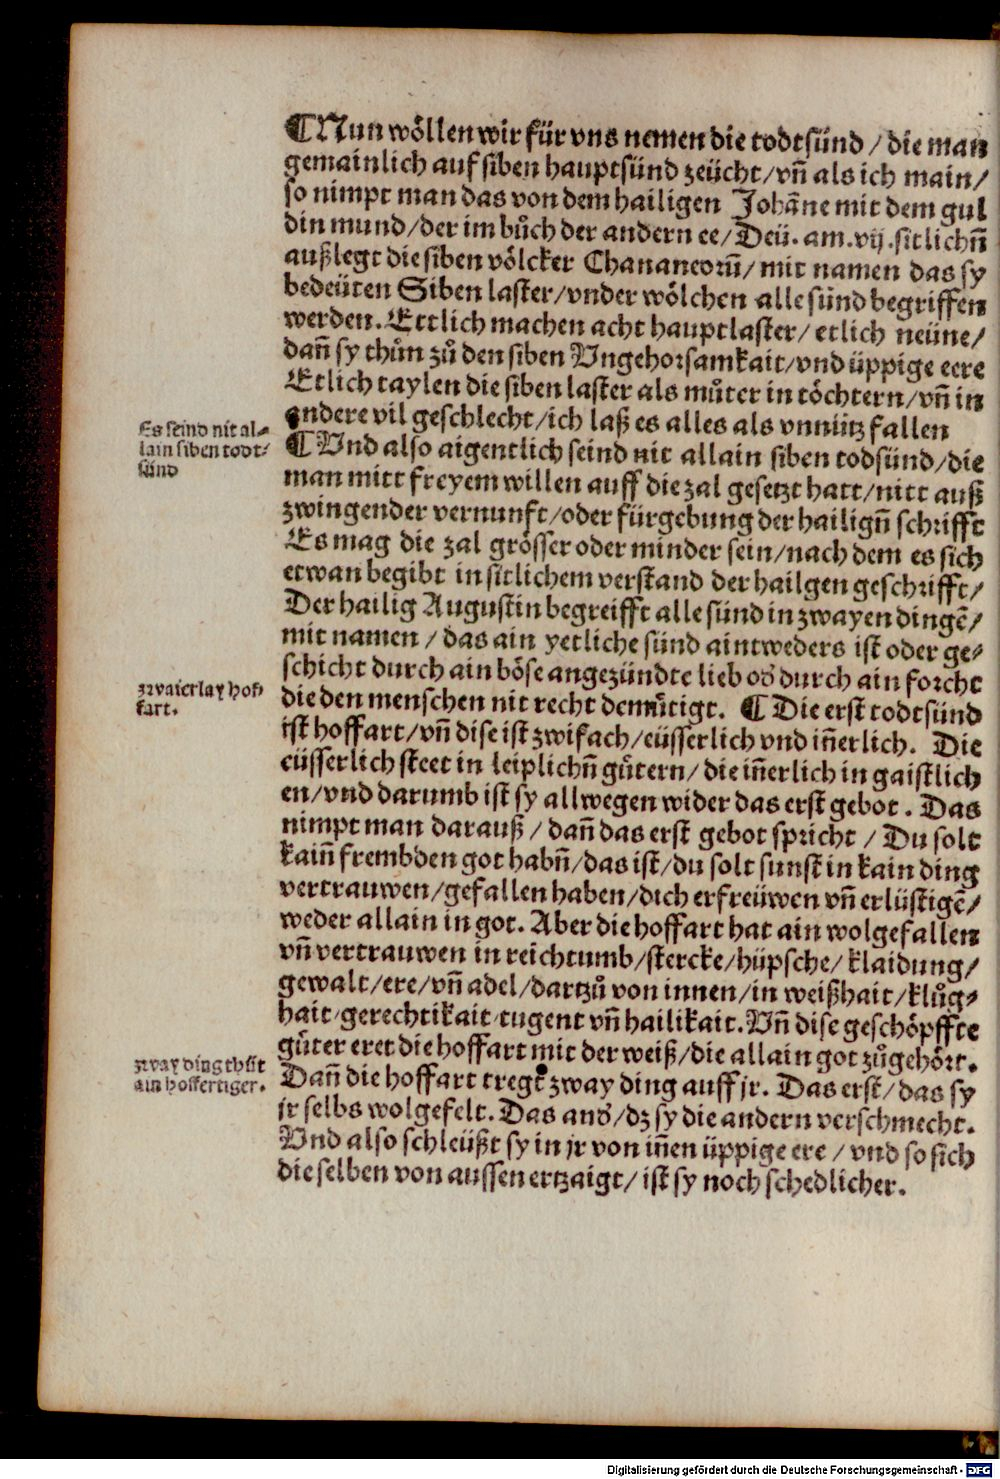 ¶ Nun wöllen wir für vns nemen die todtsünd / die man
gemainlich auf siben hauptsünd zeücht / vñ als ich main /
so nimpt man das von dem hailigen Johãne mit dem gul
din mund / der im bůch der andern ee / Deü. am .vij. sitlichñ
außlegt die siben völcker Chananeorũ / mit namen das sy
bedeüten Siben laster / vnder wölchen alle sünd begriffen
werden. Ettlich machen acht hauptlaster / etlich neüne /
dañ sy thůn zů den siben Vngehorsamkait / vnd üppige eere
Etlich taylen die siben laster als můter in töchtern / vñ in
andere vil geschlecht / ich laß es alles als vnnütz fallen
Es seind nit al⸗
lain siben todt⸗
sünd
¶ Vnd also aigentlich seind nit allain siben todsünd / die
man mitt freyem willen auff die zal gesetzt hatt / nitt auß
zwingender vernunft / oder fürgebung der hailigñ schrifft
Es mag die zal grösser oder minder sein / nach dem es sich
etwan begibt in sitlichem verstand der hailgen geschrifft /
Der hailig Augustin begreifft alle sünd in zwayen dingẽ /
mit namen / das ain yetliche sünd aintweders ist oder ge⸗
schicht durch ain böse angezündte lieb oď durch ain forcht
zwaierlay hof⸗
fart.
die den menschen nit recht demütigt. ¶ Die erst todtsünd
ist hoffart / vñ dise ist zwifach / eüsserlich vnd iñerlich. Die
eüsserlich steet in leiplichñ gůtern / die iñerlich in gaistlich
en / vnd darumb ist sy allwegen wider das erst gebot. Das
nimpt man darauß / dañ das erst gebot spricht / Du solt
kaiñ frembden got habñ / das ist / du solt sunst in kain ding
vertrauwen / gefallen haben / dich erfreüwen vñ erlüstigẽ /
weder allain in got. Aber die hoffart hat ain wolgefallen
vñ vertrauwen in reichtumb / stercke / hüpsche / klaidung /
gewalt / ere / vñ adel / dartzů von innen / in weißhait / klůg⸗
hait / gerechtikait / tugent vñ hailikait. Vñ dise geschöpffte
gůter eret die hoffart mit der weiß / die allain got zůgehört.
zway ding thůt
ain hoffertiger.
Dañ die hoffart tregt zway ding auff jr. Das erst / das sy
jr selbs wolgefelt. Das anď / dz sy die andern verschmecht.
Vnd also schleüßt sy in jr von iñen üppige ere / vnd so sich
die selben von aussen ertzaigt / ist sy noch schedlicher.
Digitalisierung gefördert durch die Deutsche Forschungsgemeinschaft - DFG